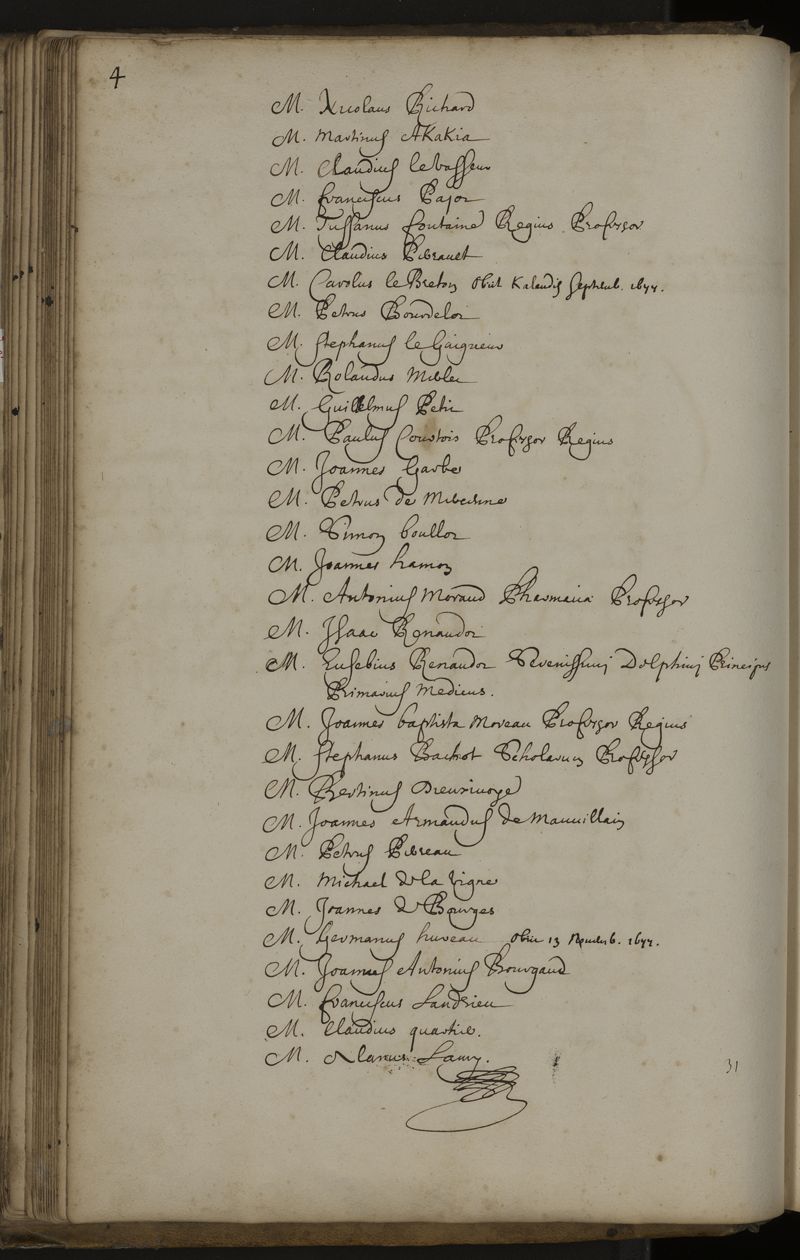 4
M. Nicolaus Richard
M. Martinus Akakia
M. Claudius le Vasseur
M. Franciscus Pajot
M. Tussanus fontaine Regius Professor
M. Claudius Perrault
M. Carolus le Breton Obiit Kalendis Septemb. 1677.
M. Petrus Bourdelot
M. Stephanus le Gaigneur
M. Rolandus Merlet
M. Guillelmus Petit
M. Paulus Courtois Professor Regius
M. Joannes Garbe
M. Petrus de Mercenne
M. Simon boullot
M. Joannes hamon
M. Antonius Morand Pharmaciæ Professor
M. Isaac Renaudot
M. Eusebius Renaudot Serenissimi Delphini Principis
Primarius Medicus.
M. Joannes baptista Moreau Professor Regius
M. Stephanus Bachot Scholarum Professor
M. Bertinus Dieuxivoye
M. Joannes Armandus de Mauvillain
M. Petrus Perreau
M. Michael de la Vigne
M. Joannes de Bourges
M. Germanus hureau Obiit 13 Novemb. 1677.
M. Joannes Antonius Bourgaud
M. Franciscus Landrieu
M. Claudius quartier.
M. Alanus Lamy.
31